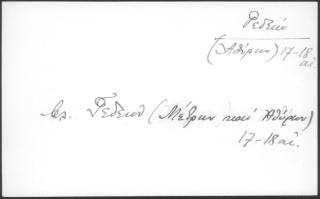 Γεδεών
(Αθύρων) 17-18
αἰ.
Βλ. Γεδεών (Μέτρων καί Ἀθύρων)
17-18 αἰ.